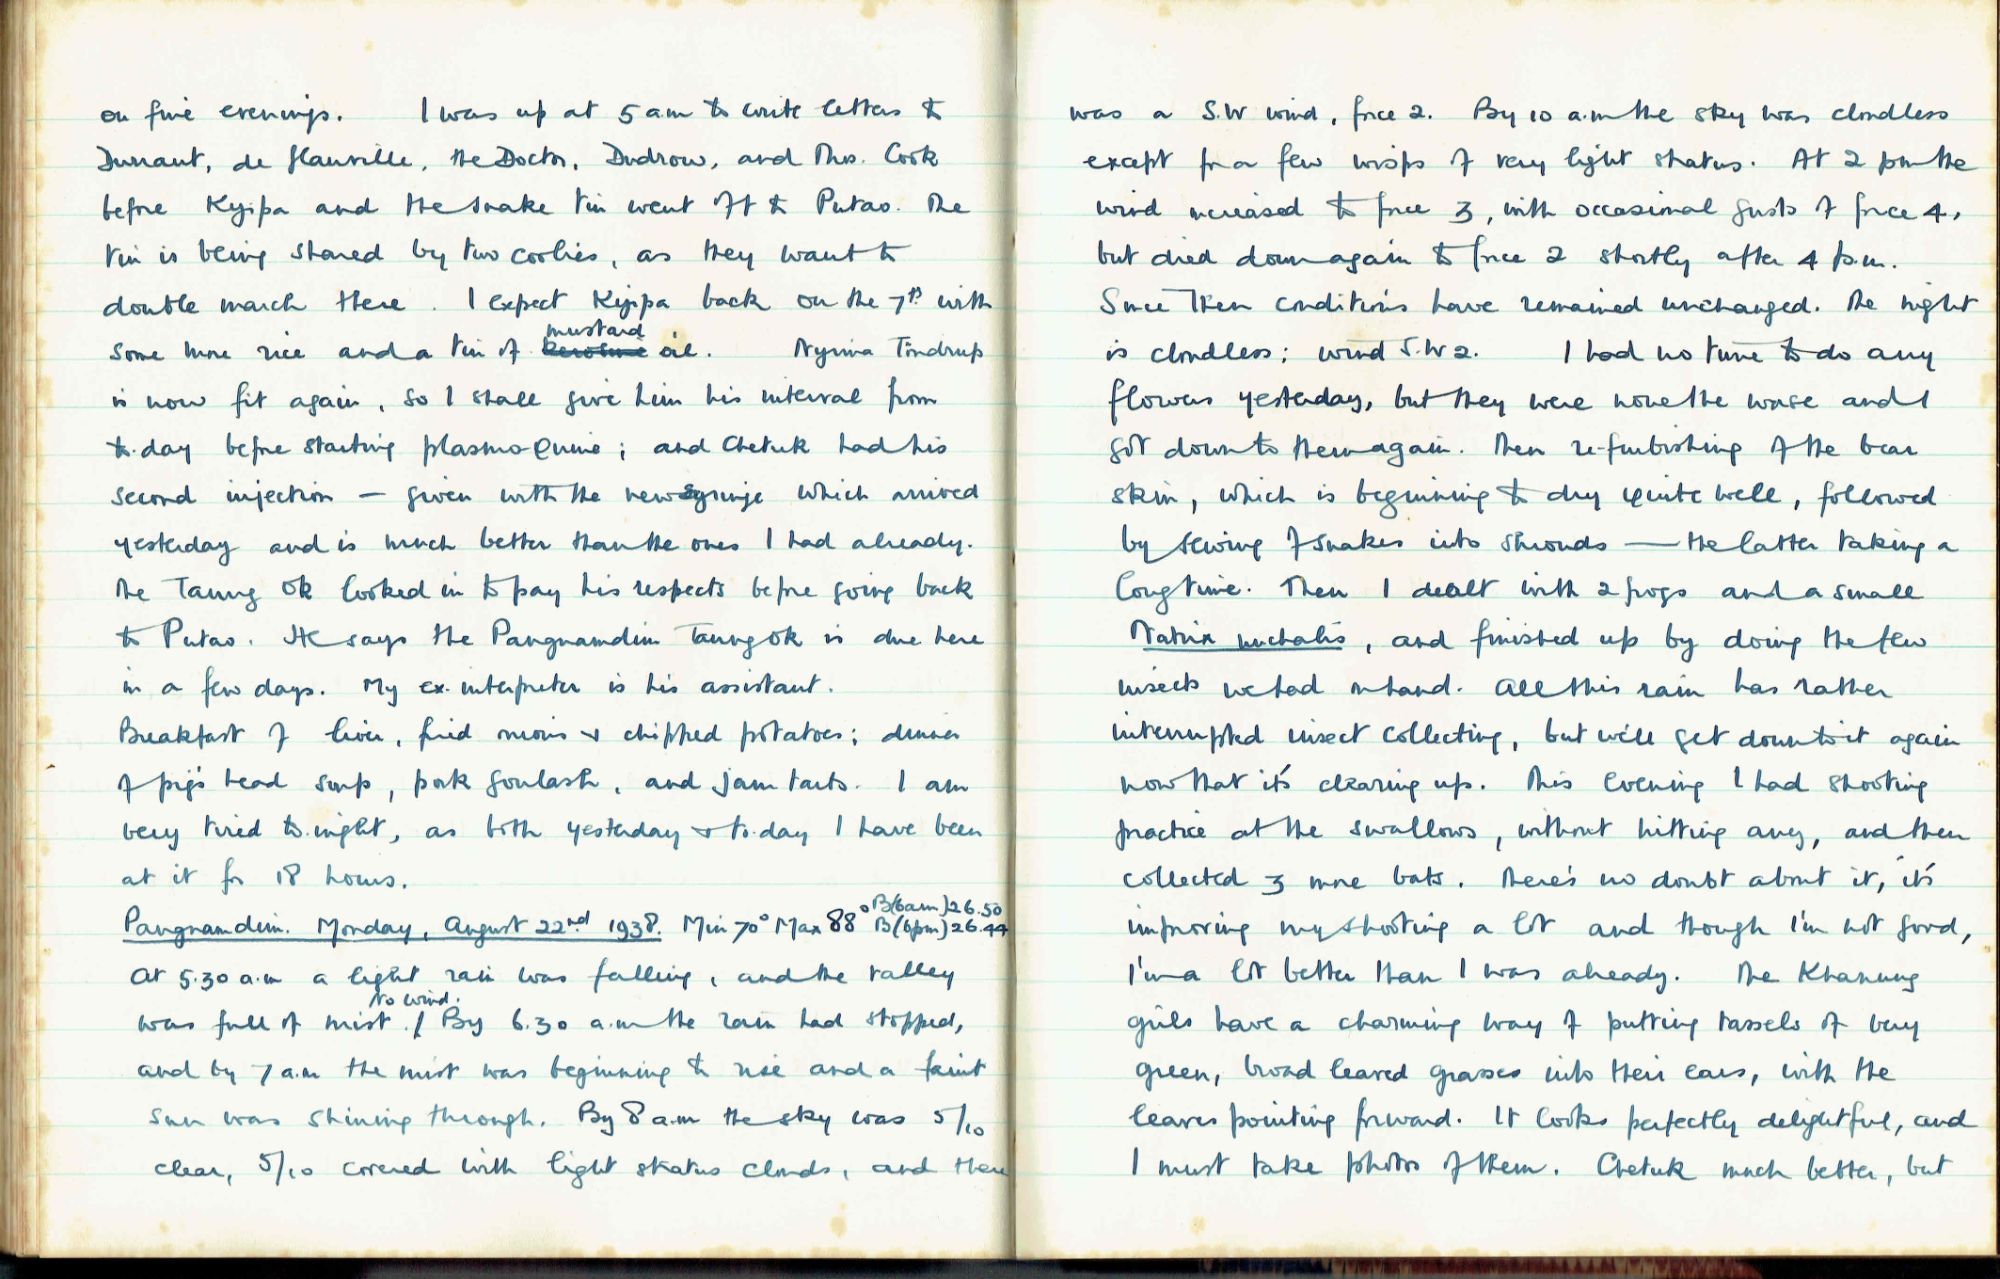 on fine evenings. I was up at 5 am to write letters to
Durrant, de Glanville, the Doctor, Dudrow, and Thos. Cook
before Kyipa and the snake tin went off to Putao. The
tin is being shared by two coolies, as they want to
double march there. I expect Kyipa back on the 7th with
some more rice and a tin of kerosine mustard oil. Nyima Tindrup
is now fit again, so I shall give him his interval from
to-day before starting plasmo-quine; and Chetuk had his
second injection — given with the new syringe which arrived
yesterday and is much better than the ones I had already.
The Taung Ok looked in to pay his respects before going back
to Putao. He says the Pangnamdim Taungok is due here
in a few days. My ex-interpreter is his assistant.
Breakfast of liver, fried onions & chipped potatoes; dinner
of pig's head soup, pork goulash, and jam tarts. I am
very tired to-night, as both yesterday & to-day I have been
at it for 18 hours.
Pangnamdim. Monday, August 22nd 1938. Min 70° Max 88° B(6am)26.50 B(6pm)26.44
At 5.30 a.m a light rain was falling, and the valley
was full of mist. No wind. / By 6.30 a.m the rain had stopped,
and by 7 a.m the mist was beginning to rise and a faint
sun was shining through. By 8 a.m the sky was 5/10
clear, 5/10 covered with light stratus clouds, and there
was a S.W wind, force 2. By 10 a.m the sky was cloudless
except for a few wisps of very light stratus. At 2 pm the
wind increased to force 3, with occasional gusts of force 4,
but died down again to force 2 shortly after 4 p.m.
Since then conditions have remained unchanged. The night
is cloudless; wind S.W 2. I had no time to do any
flowers yesterday, but they were none the worse and I
got down to them again. Then re-furbishing of the bear
skin, which is beginning to dry quite well, followed
by sewing of snakes into shrouds — the latter taking a
long time. Then I dealt with 2 frogs and a small
Natrix nuchalis, and finished up by doing the few
insects we had on hand. All this rain has rather
interrupted insect collecting, but we'll get down to it again
now that it's clearing up. This evening I had shooting
practice at the swallows, without hitting any, and then
collected 3 more bats. There's no doubt about it, it's
improving my shooting a lot and though I'm not good,
I'm a lot better than I was already. The Khanung
girls have a charming way of putting tassels of very
green, broad leaved grasses into their ears, with the
leaves pointing forward. It looks perfectly delightful, and
I must take photos of them. Chetuk much better, but